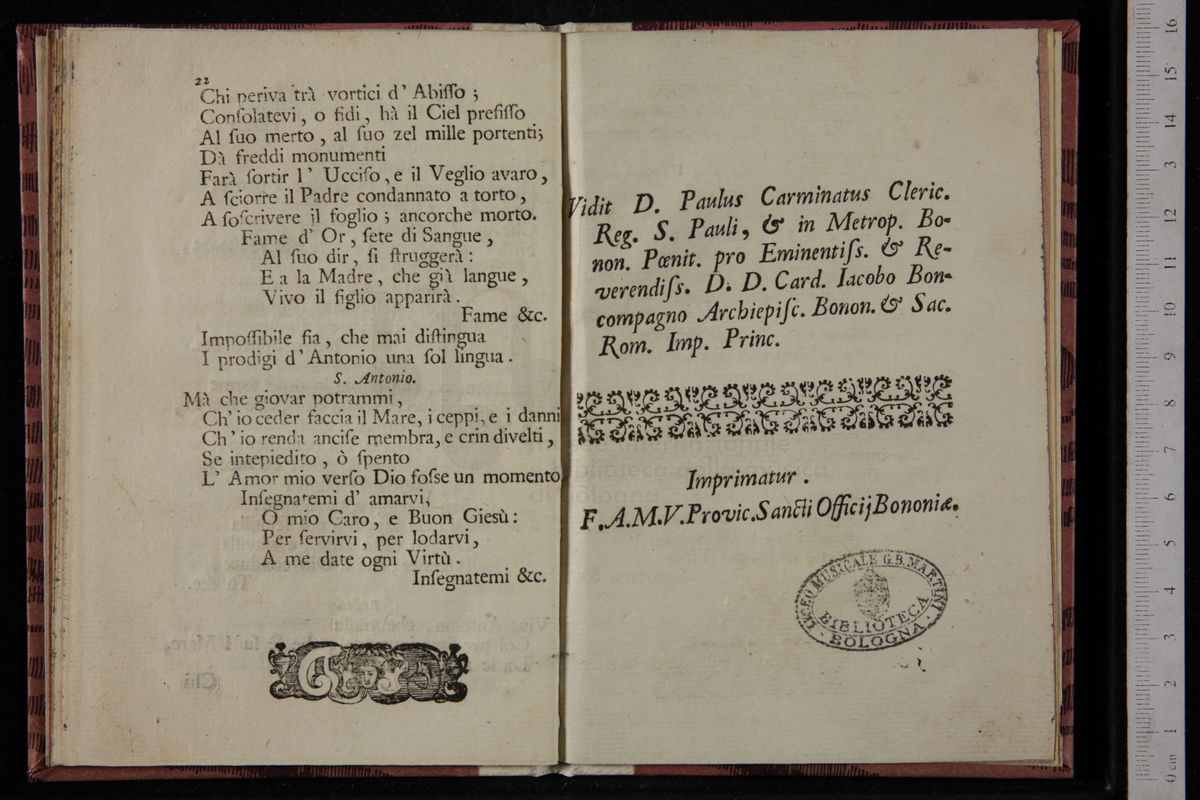 22
Chi periva trà vortici d' Abiſſo ;
Conſolatevi, o fidi, hà il Ciel prefiſſo
Al ſuo merto, al ſuo zel mille portenti;
Dà freddi monumenti
Farà ſortir l' Ucciſo, e il Veglio avaro,
A ſciorre il Padre condannato a torto,
A ſoſcrivere il foglio ; ancorche morto.
Fame d' Or, ſete di Sangue,
Al ſuo dir, ſi ſtruggerà :
E a la Madre, che già langue,
Vivo il figlio apparirà.
Fame &c.
Impoſſibile fia, che mai diſtingua
I prodigi d' Antonio una ſol lingua.
S. Antonio.
Mà che giovar potrammi,
Ch' io ceder faccia il Mare, i ceppi, e i danni
Ch' io renda anciſe membra, e crin divelti,
Se intepiedito, ò ſpento
L' Amor mio verſo Dio foſse un momento
Inſegnatemi d' amarvi,
O mio Caro, e Buon Giesù :
Per ſervirvi, per lodarvi,
A me date ogni Virtù.
Inſegnatemi &c.
Vidit D. Paulus Carminatus Cleric.
Reg. S. Pauli, & in Metrop. Bo-
non. Pœnit. pro Eminentiſs. & Re-
verendiſs. D. D. Card. Iacobo Bon-
compagno Archiepiſc. Bonon. & Sac.
Rom. Imp. Princ.
Imprimatur.
F. A. M. V. Provic. Sancti Officij Bononiæ.
LICEO MUSICALE G.B. MARTINI
BIBLIOTECA
BOLOGNA
0 cm 1 2 3 4 5 6 7 8 9 10 11 12 3 14 15 16